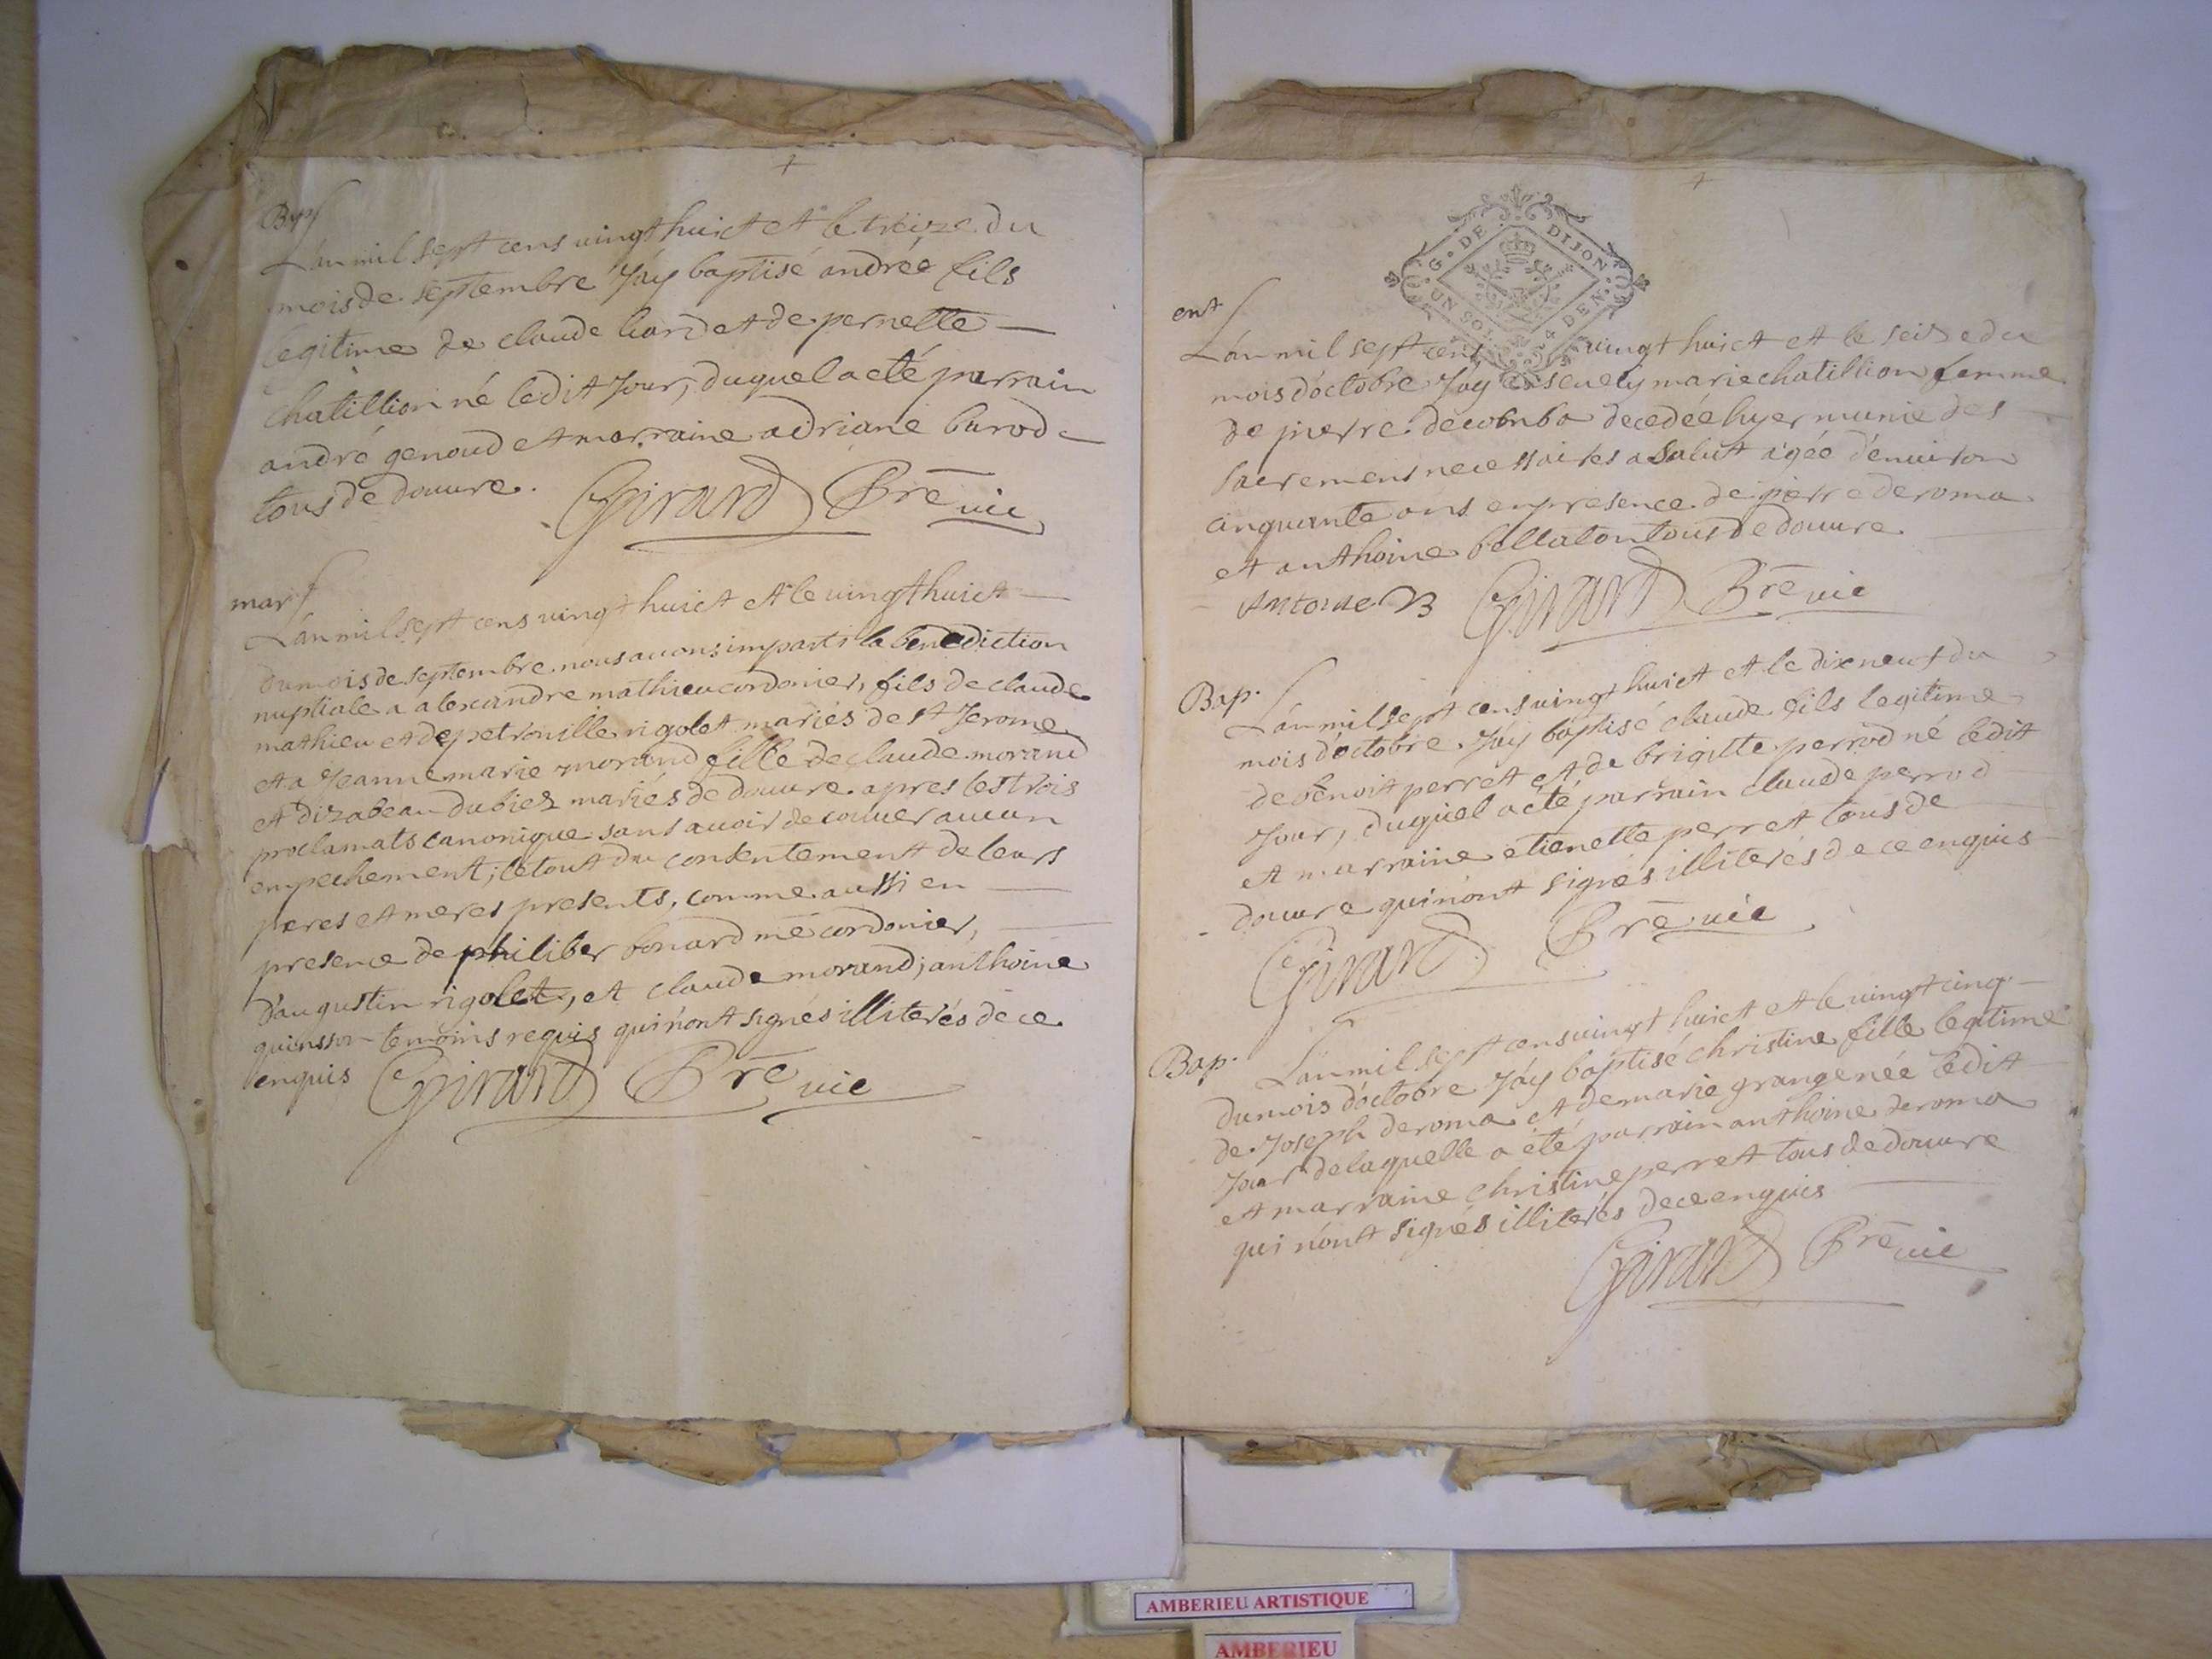 Bap
L'an mil sept cens uingt huict et le treize du
mois de septembre J'ay baptisé andré fils
legitime de claude liard et de pernette
chatillion né ledit Jour, duquel a eté parrain
andré genoud et marraine adriane barod
tous de douure.
Girard Prē uic
mar
L'an mil sept cens uingt huict et le uingt huict
du mois de septembre nous auons imparti la benediction
nuptiale a alexandre mathieu cordonier, fils de claude
mathieu et de petronille rigolet mariés de st Jerome
et a Jeanne marie morand fille de claude morand
et dizabeau dubiez mariés de douure apres les trois
proclamats canonique sans auoir decouuer aucun
empechement; le tout du consentement de leurs
peres et meres presents, comme aussi en
presence de philiber bonard mē cordonier,
d'augustin rigolet, et claude morand; anthoine
quinsson temoins requis qui n'ont signés illiterés de ce
enquis Girard Prē uic
G. DE DIJON
UN SOL 4 DEN.
ent
L'an mil sept cens uingt huict et le seize du
mois d'octobre J'ay enseuely marie chatillion femme
de pierre decomba decedée hyer munie des
sacremens necessaires a salut agée d'enuiron
cinquante ans en presence de pierre deroma
et anthoine bellaton tous de douure
Antoine B Girard Prē uic
Bap.
L'an mil sept cens uingt huict et le dixneuf du
mois d'octobre J'ay baptisé claude fils legitime
de benoit perret et de brigitte perrod né ledit
Jour, duquel a eté parrain claude perrod
et marraine etienette perret tous de
douure qui n'ont signés illiterés de ce enquis
Girard Prē uic
Bap.
L'an mil sept cens uingt huict et le uingt cinq
du mois d'octobre J'ay baptisé christine fille legitime
de Joseph deroma et de marie grange née ledit
Jour de laquelle a eté parrain anthoine deroma
et marraine christine perret tous de douure
qui n'ont signés illiterés de ce enquis
Girard Prē uic
AMBERIEU ARTISTIQUE
AMBERIEU